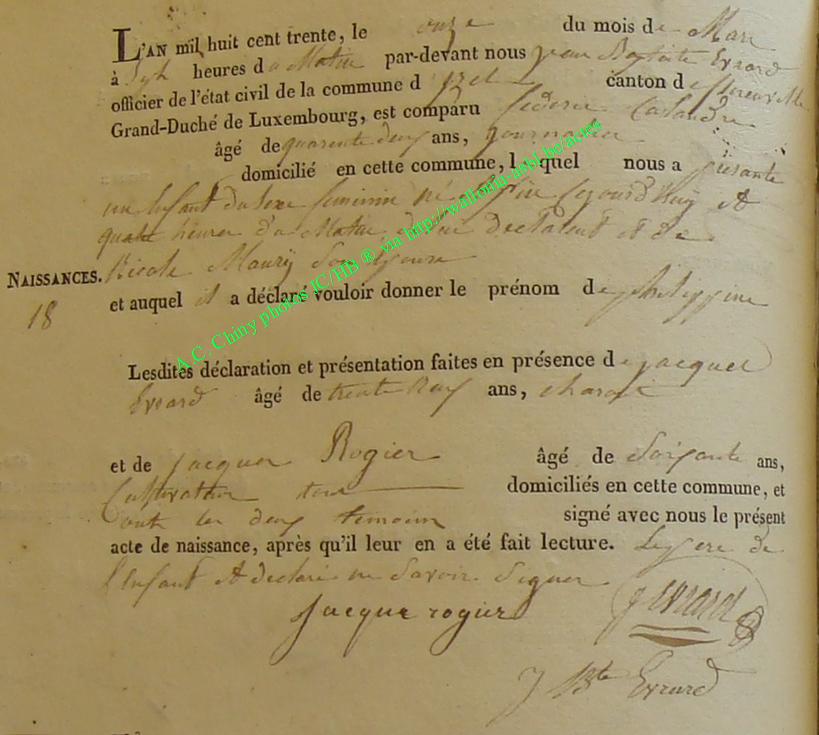 L'AN mil huit cent trente, le onze du mois de Mars
à Sept heures du Matin par-devant nous jean Baptiste Evrard
officier de l'état civil de la commune d'izel canton de florenville
Grand-Duché de Luxembourg, est comparu
âgé de quarente deux ans, journalier
domicilié en cette commune, lequel nous a presente
un Enfant du sexe feminin né à izel cejourd'huy A
quatre heures du Matin de lui declarant et de
Nicole Maury son Epouse
NAISSANCES.
18
et auquel il a déclaré vouloir donner le prénom de philippine
Lesdites déclaration et présentation faites en présence de jacques
Evrard âgé de trente neuf ans, charon
et de jacques Rogier âgé de soixante ans,
Cultivateur tous domiciliés en cette commune, et
ont les deux temoins signé avec nous le présent
acte de naissance, après qu'il leur en a été fait lecture. Le pere de
l'enfant A declaré ne savoir signer
jacque rogier
j evrard
J Bte Evrard
A.C. Chiny photos IC/HB ® via http://wallonia-asbl.be/actes